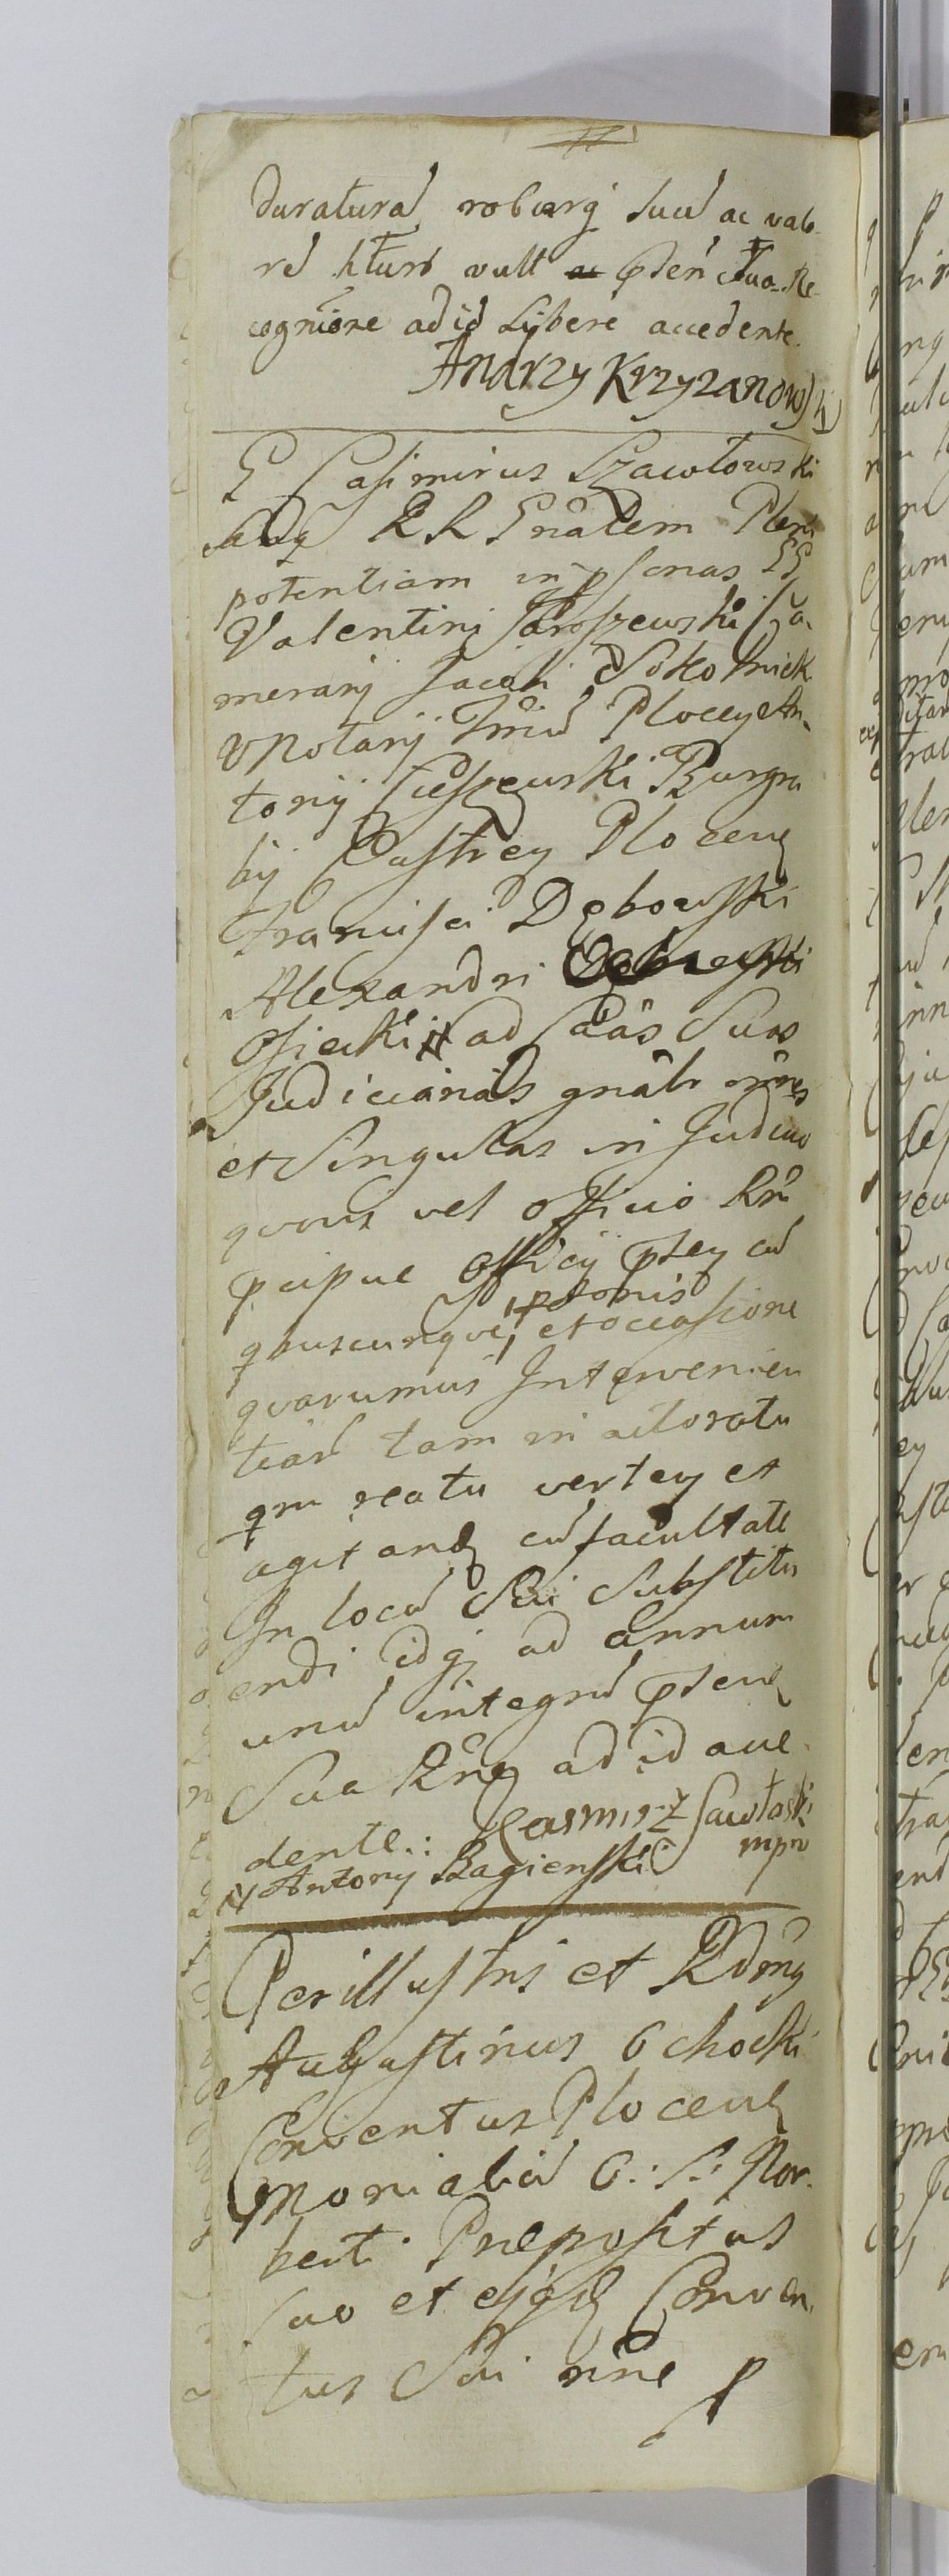 duraturã roborẽ suũ ac valo-
rẽ htur̃ vult pñti sua Re-
cognĩõne ad id Libere accedente.
Andrzy Krzyzanowski
G Casimirus Szawłowski
R R Gñalem Pleni
potentiam in psonas GG
Valentini Jaroszewski Ca-
merarij Jacobi Sokolnicki
VNotarij Trrũ Plocey An-
tonij Cieszewski Burgra
bij Castrey Plocen
Francisci Dębowski
Alexandri
Osiecki # ad Cãas Suas
Judiciarias gñalr oẽs
et Singulas in Judicio
quovis vel officio Rñi
pcipue officij ptey cũ
qbuscunque psonis et occasione
quarumvis Intervenien
tiar tam in actoratu
qm reatu vertey et
agitand cũ facultate
In locũ Sui Substitu
endi idq; ad annum
unũ integrũ pñten
Sua Rñe ad id acce-
dente.: Kazmirz Sawłoski
mpr
# Antony Bagienski
Perillustris et Rdmg
Augustinus Ochocki
Conventus Plocen
Monialiũ O.: S.: Nor-
berti Prepositus
suo et ejqd Conven-
tus Sui nñe